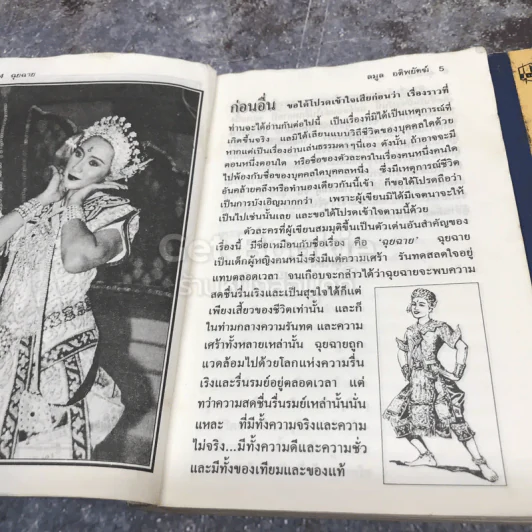 ฉุยฉาย
ตมูล อดิพยัคฆ์ 5
ก่อนอื่น ขอได้โปรดเข้าใจเสียก่อนว่า เรื่องราวที่
ท่านจะได้อ่านกันต่อไปนี้ เป็นเรื่องที่มิได้เป็นเหตุการณ์ที่
เกิดขึ้นจริง และมิได้เลียนแบบวิถีชีวิตของบุคคลใดด้วย
หากแต่เป็นเรื่องอ่านเล่นธรรมดา ๆ นี่เอง ดังนั้น ถ้าอาจจะมี
ตอนหนึ่งตอนใด หรือชื่อของตัวละครในเรื่องคนหนึ่งคนใด
ไปพ้องกับชื่อของบุคคลใดบุคคลหนึ่ง ซึ่งมีเหตุการณ์ชีวิต
อันคล้ายคลึงหรือทำนองเดียวกันนี้เข้า ก็ขอได้โปรดถือว่า
เป็นการบังเอิญมากกว่า เพราะผู้เขียนมิได้มีเจตนาจะให้
เป็นไปเช่นนั้นเลย และขอได้โปรดเข้าใจตามนี้ด้วย
ตัวละครที่ผู้เขียนสมมุติขึ้นเป็นตัวเด่นอันสำคัญของ
เรื่องนี้ มีชื่อเหมือนกับชื่อเรื่อง คือ 'ฉุยฉาย' ฉุยฉาย
เป็นเด็กผู้หญิงคนหนึ่งซึ่งมีแต่ความเศร้า รันทดสลดใจอยู่
แทบตลอดเวลา จนเกือบจะกล่าวได้ว่าฉุยฉายจะพบความ
สดชื่นรื่นเริงและเป็นสุขใจได้ก็แต่
เพียงเสี้ยวของชีวิตเท่านั้น และก็
ในท่ามกลางความรันทด และความ
เศร้าทั้งหลายเหล่านั้น ฉุยฉายถูก
แวดล้อมไปด้วยโลกแห่งความรื่น
เริงและรื่นรมย์อยู่ตลอดเวลา แต่
ทว่าความสดชื่นรื่นรมย์เหล่านั้นนั่น
แหละ ที่มีทั้งความจริงและความ
ไม่จริง...มีทั้งความดีและความชั่ว
และมีทั้งของเทียมและของแท้